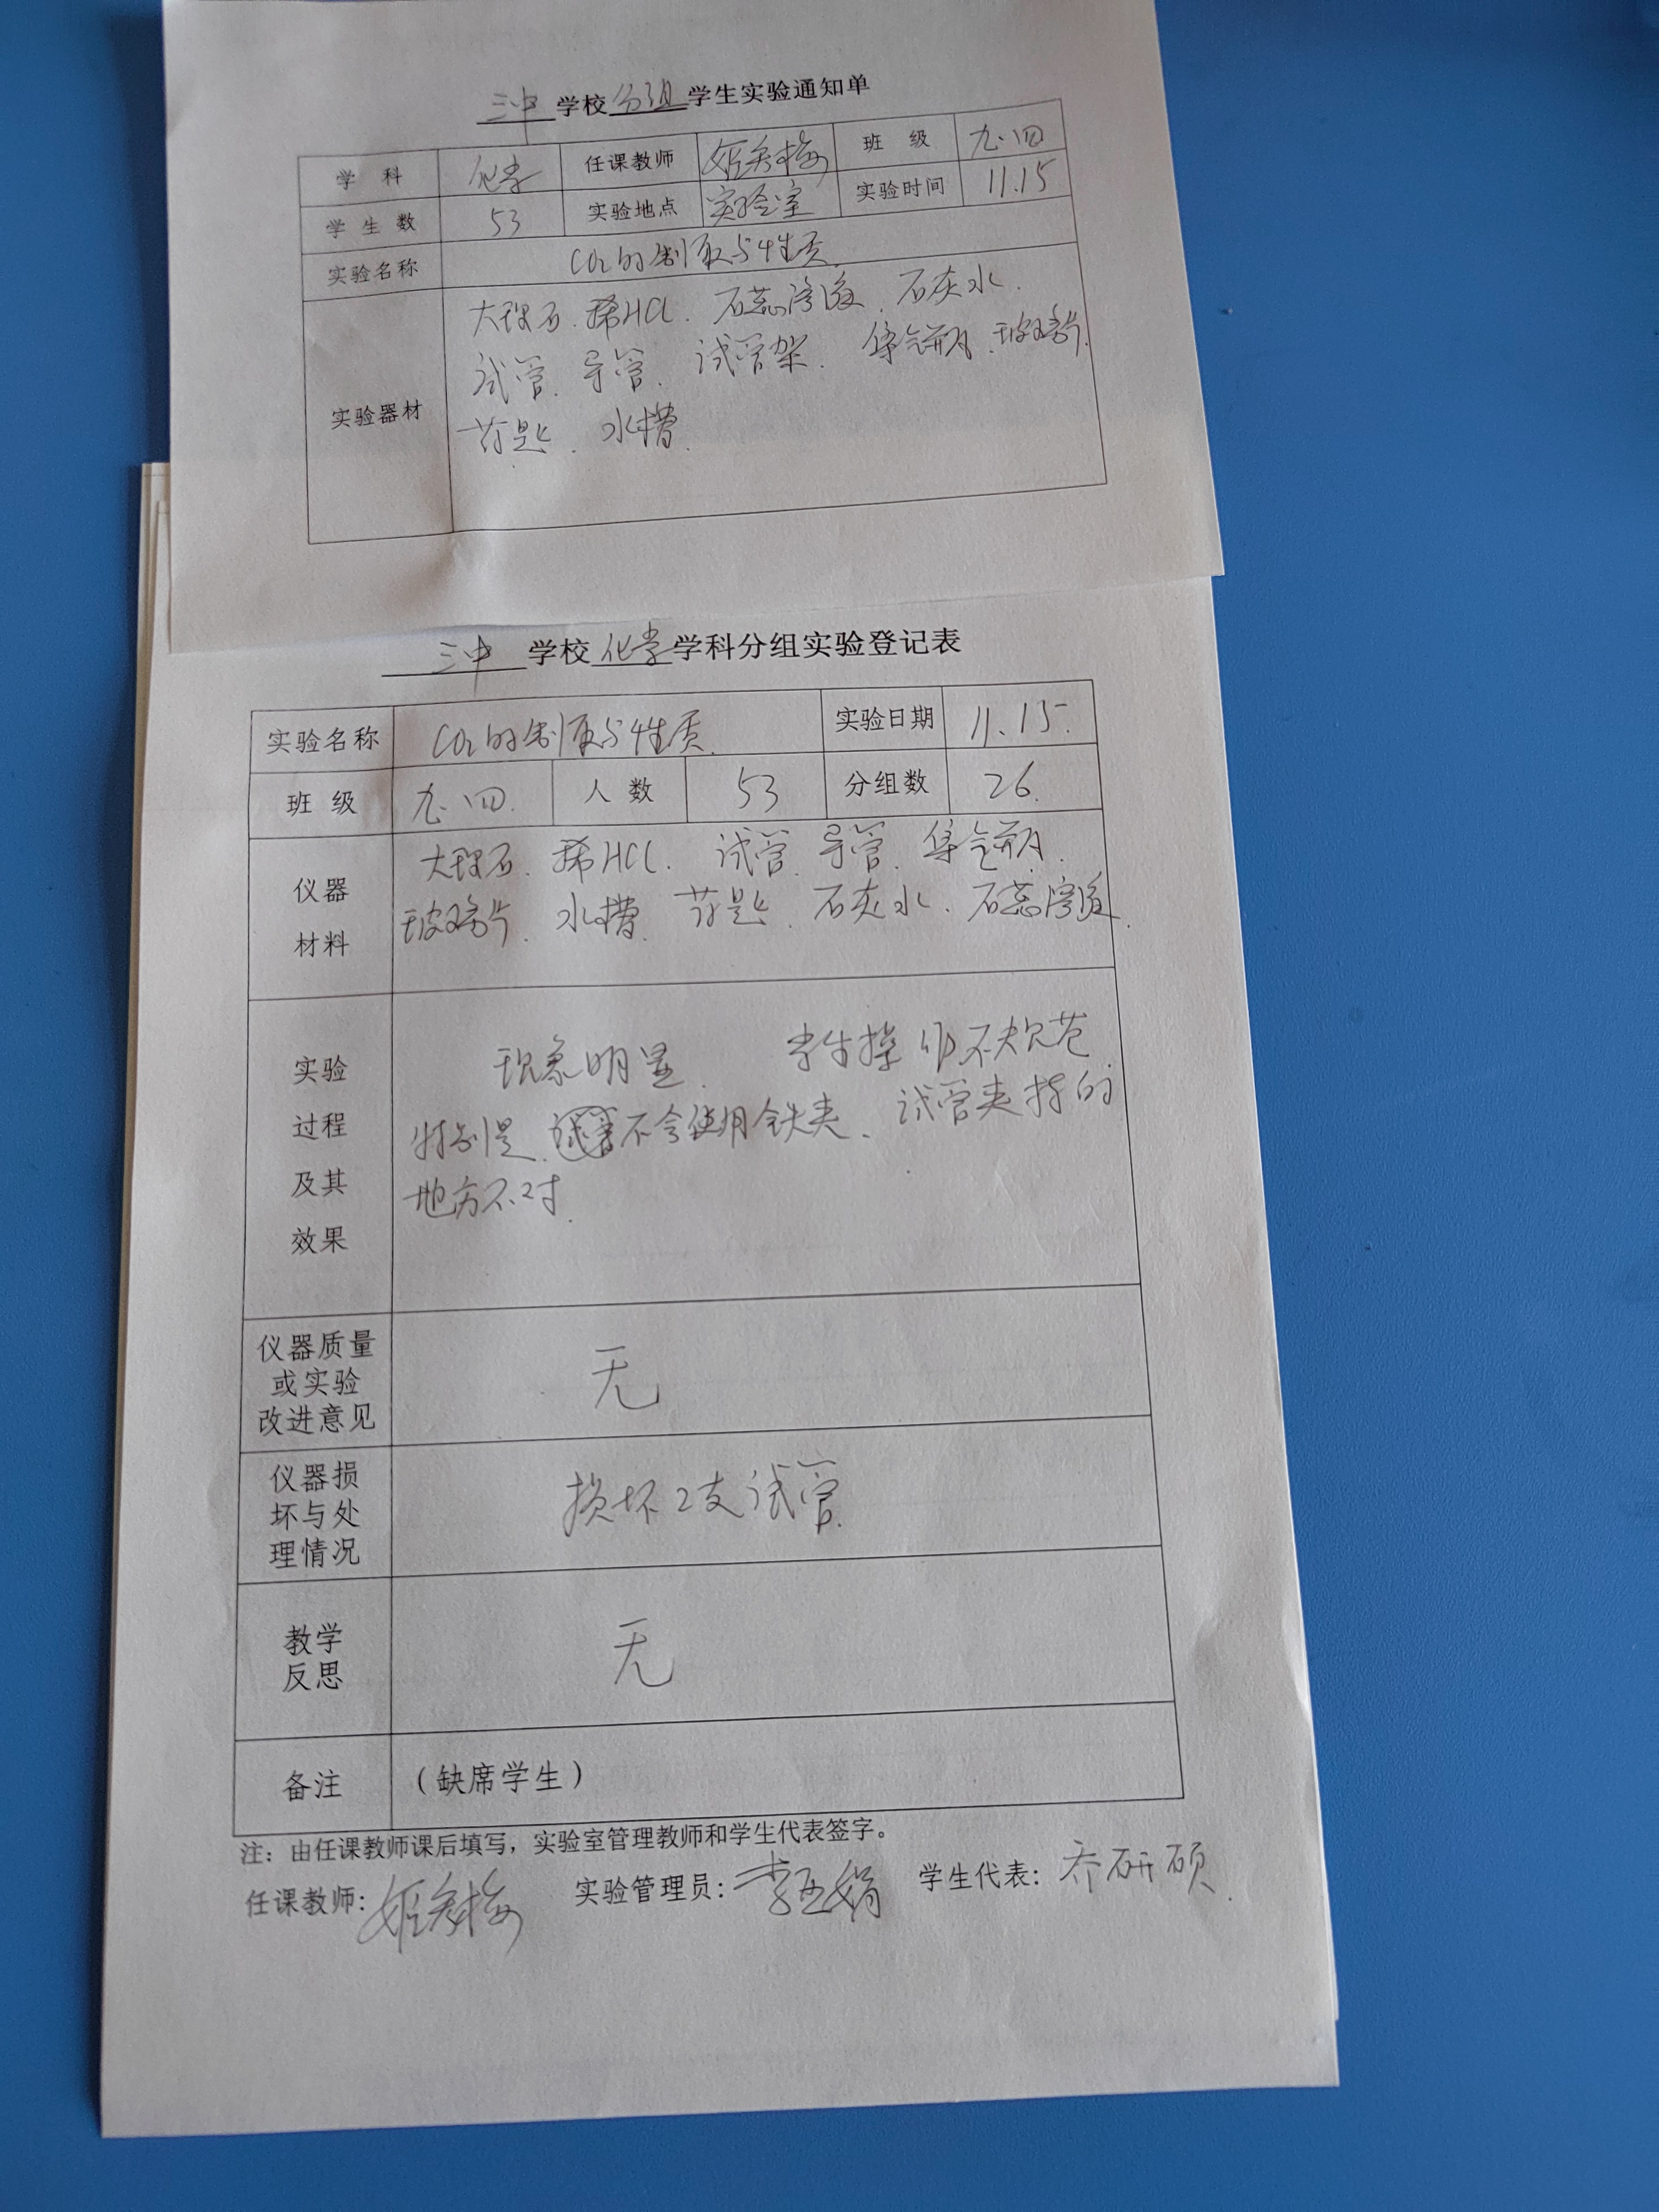 三中 学校 分组 学生实验通知单
学 科 化学 任课教师 班 级 九.四
学 生 数 53 实验地点 实验室 实验时间 11.15
实验名称 CO₂的制取与性质
大理石、稀HCl、石蕊溶液、石灰水、
试管、导管、试管架、集气瓶、玻璃片、
药匙、水槽
实验器材
三中 学校 化学 学科分组实验登记表
实验名称 CO₂的制取与性质 实验日期 11.15
班 级 九.四 人 数 53 分组数 26
仪器
材料
大理石、稀HCl、试管、导管、集气瓶、
玻璃片、水槽、药匙、石灰水、石蕊溶液
实验
过程
及其
效果
现象明显、学生操作不规范
特别是、不会使用铁夹、试管夹持的
地方不对
仪器质量
或实验
改进意见
无
仪器损
坏与处
理情况
损坏2支试管
教学
反思
无
备注 （缺席学生）
注：由任课教师课后填写，实验室管理教师和学生代表签字。
任课教师： 实验管理员： 学生代表：乔研硕